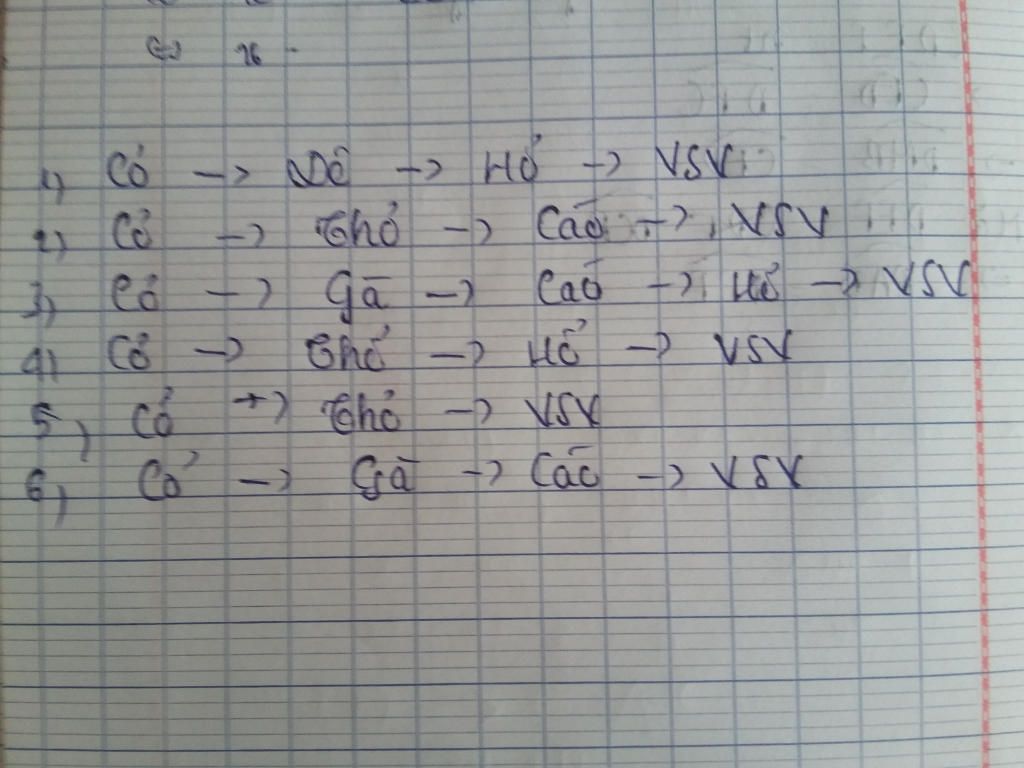 ⇔ 16.
1) Cỏ → Dê → Hổ → VSV
2) Cỏ → Thỏ → Cáo → VSV
3) Cỏ → Gà → Cáo → Hổ → VSV
4) Cỏ → Thỏ → Hổ → VSV
5) Cỏ → Thỏ → VSV
6) Cỏ → Gà → Cáo → VSV